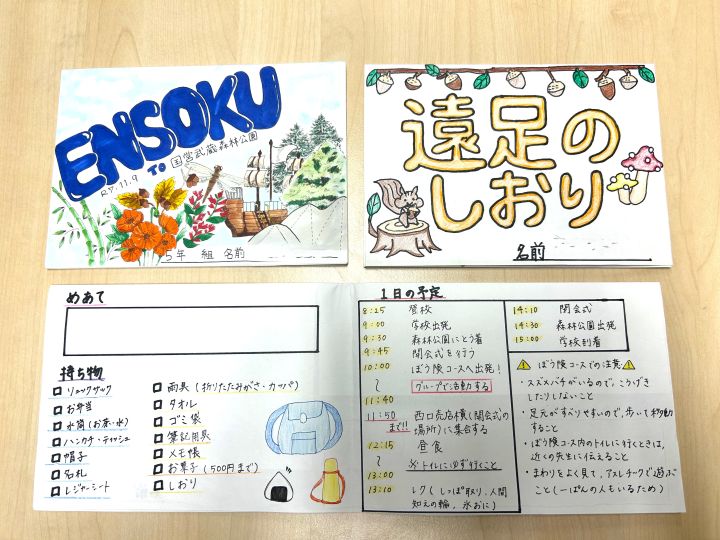 ENSOKU
TO 国営武蔵森林公園
R7.11.9
5年 組 名前
遠足の
しおり
名前
めあて
持ち物
リュックサック
お弁当
水筒(お茶・水)
ハンカチ・ティッシュ
帽子
名札
レジャーシート
雨具(折りたたみがさ・カッパ)
タオル
ゴミ袋
筆記用具
メモ帳
お菓子(500円まで)
しおり
1日の予定
8:25 登校
9:00 学校出発
9:30 森林公園にとう着
9:45 開会式を行う
10:00 ぼう険コースへ出発!
〜 グループで活動する
11:40
11:50 西口売店横(開会式の
まで!! 場所)に集合する
12:15 昼食
〜 ※トイレに必ず行くこと
13:00
13:10 レク(しっぽ取り、人間
知えの輪、氷おに)
14:10 閉会式
14:30 森林公園出発
15:00 学校到着
ぼう険コースでの注意
・スズメバチがいるので、こうげき
したりしないこと
・足元がすべりやすいので、歩いて移動
すること
・ぼう険コース内のトイレに行くときは、
近くの先生に伝えること
・まわりをよく見て、アスレチックで遊ぶ
こと(一ぱんの人もいるため)